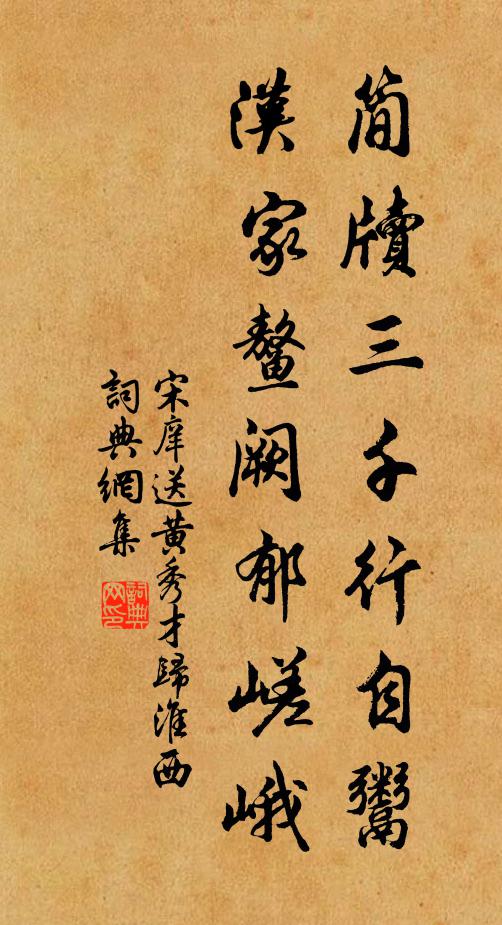 簡牘三千行自鬻
漢家鼇闕郁嵯峨
宋庠送黄秀才歸淮西
詞典網集
詞典网印